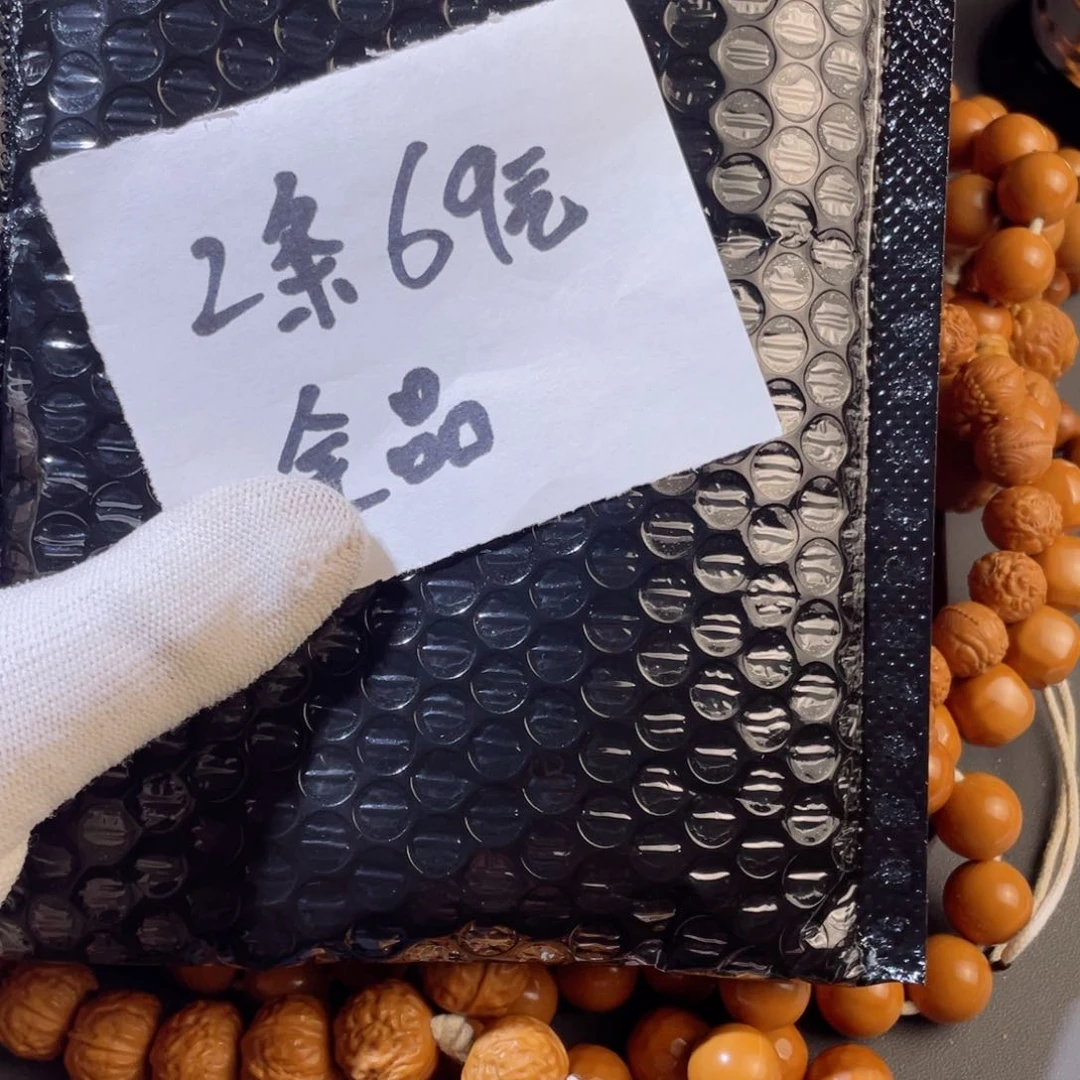 2条69元
全品